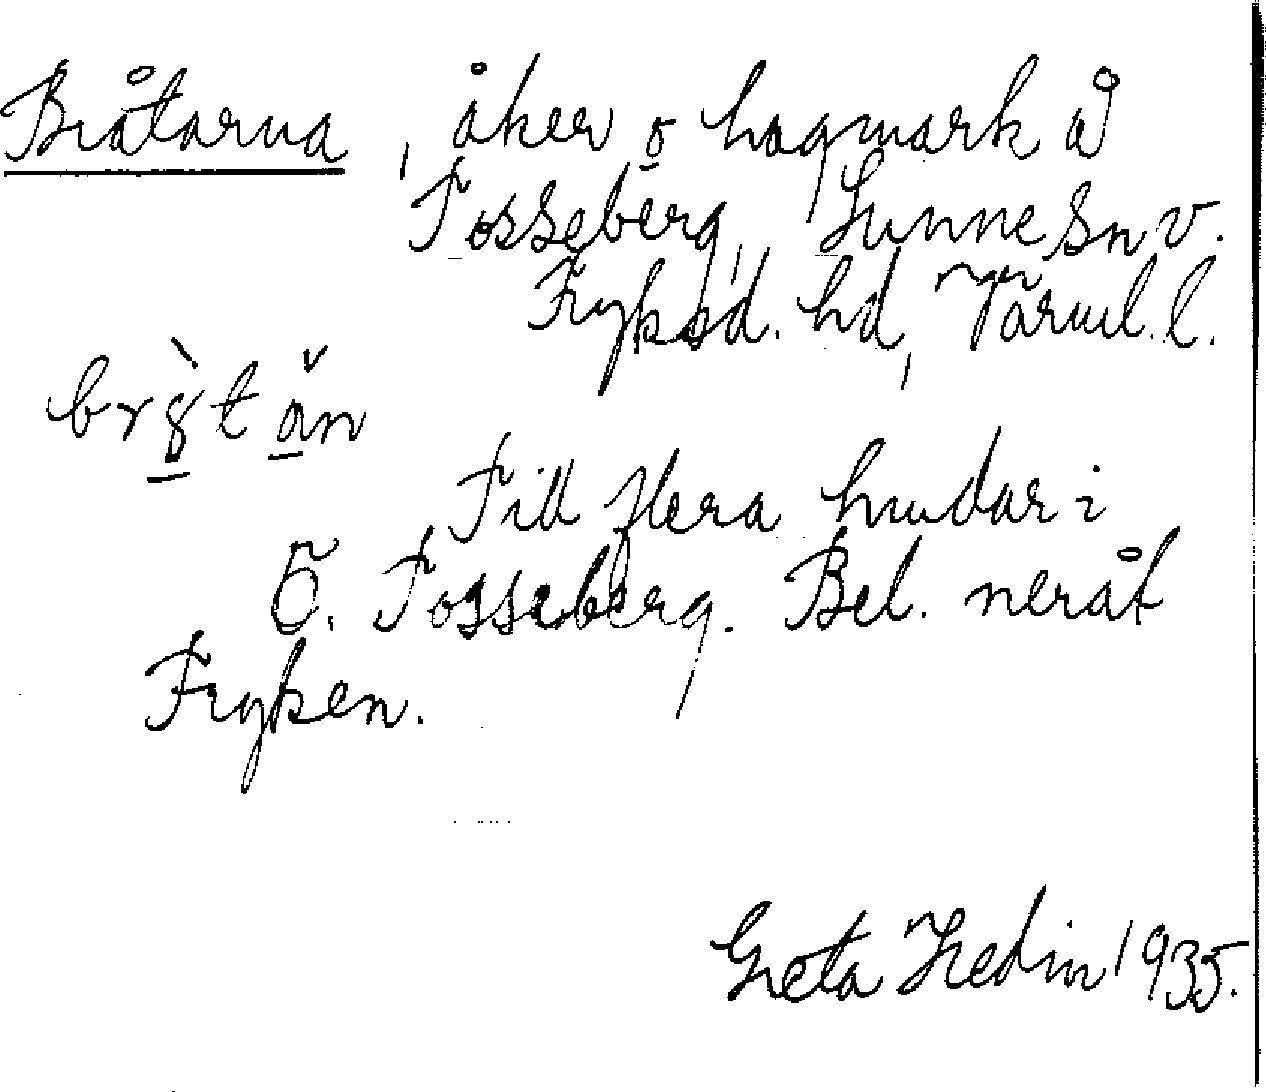 Bråtarna, åker o hagmark å
Fosseberg, Sunne sn v.
Fryksd. hd, Värml. l.
Till flera hundar i
Ö. Fosseberg. Bel. neråt
Fryken.
Greta Hedin 1935.